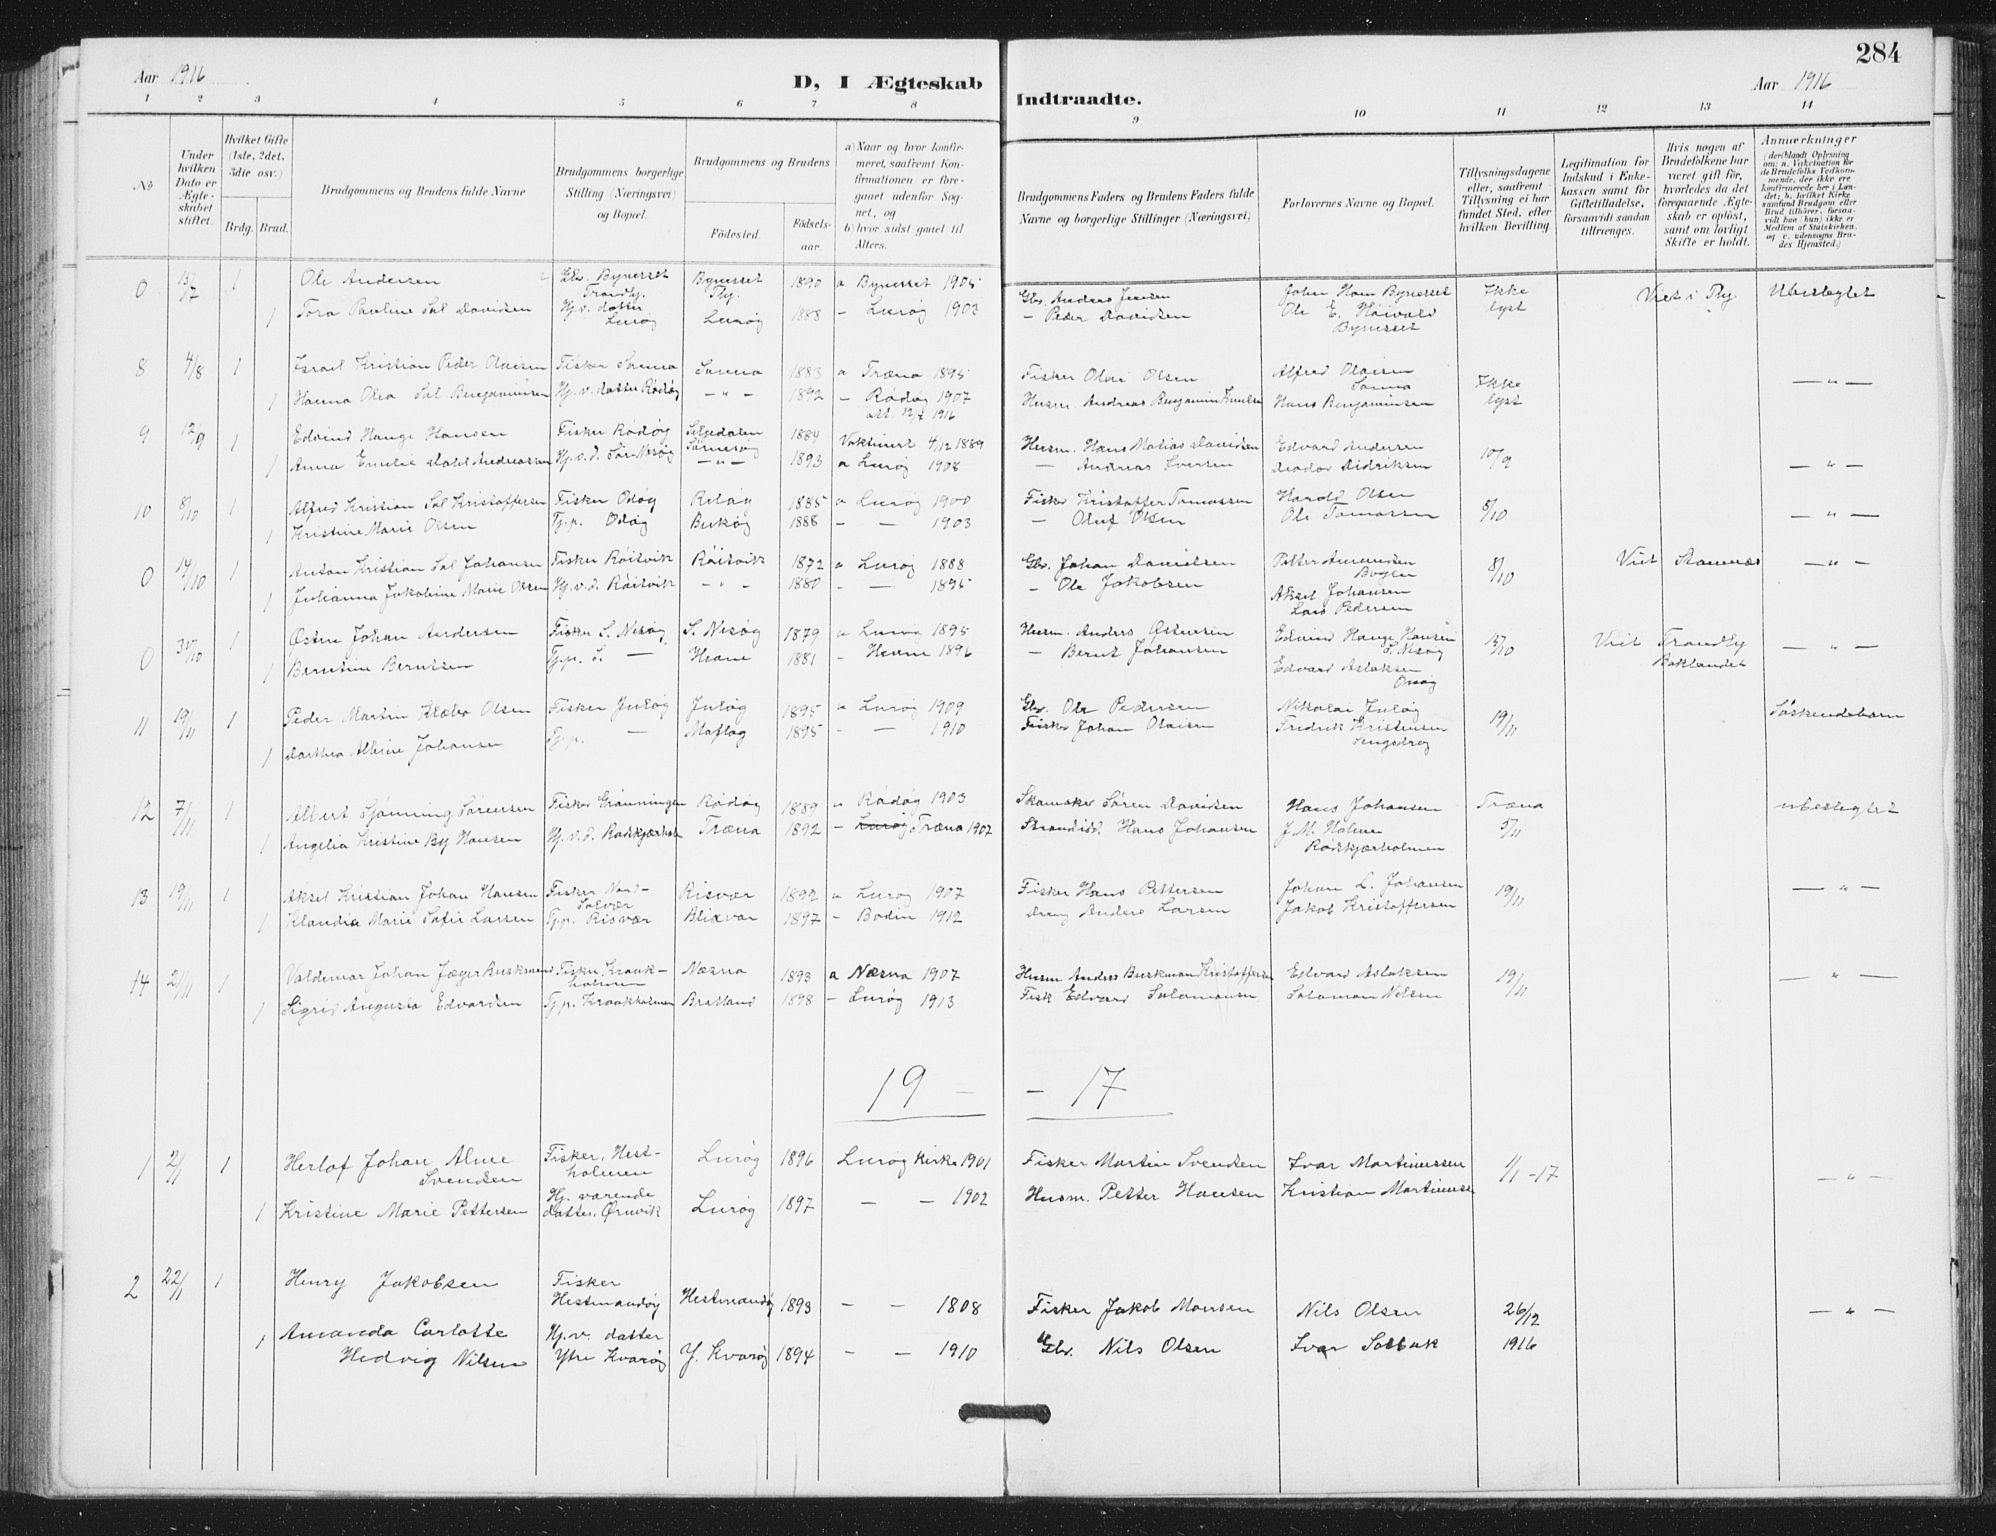 284
Aar 1916
D, I Ægteskab Indtraadte.
Aar 1916
1 2 3 4 5 6 7 8 9 10 11 12 13 14
No
Under hvilken Dato er Ægteskabet stiftet.
Hvilket Gifte (1ste, 2det, 3die osv.)
Brdg. Brud.
Brudgommens og Brudens fulde Navne
Brudgommens borgerlige Stilling (Næringsvei) og Bopæl.
Brudgommens og Brudens
Fødested. Fødselsaar.
a) Naar og hvor konfirmeret, saafremt Konfirmationen er foregaaet udenfor Sognet, og
b) hvor sidst gaaet til Alters.
Brudgommens Faders og Brudens Faders fulde Navne og borgerlige Stillinger (Næringsvei)
Forlovernes Navne og Bopæl.
Tillysningsdagene eller, saafremt Tillysning ei har fundet Sted, efter hvilken Bevilling.
Legitimation for Indskud i Enkekassen samt for Giftetilladelse, forsaavidt saadan tiltrænges.
Hvis nogen af Brudefolkene har været gift før, hvorledes da det foregaaende Ægteskab er opløst, samt om lovligt Skifte er holdt.
Anmærkninger
0 1 Ole Andersen Gbr. Bynesset Bynesset 1890 a Bynesset 1905 Gbr. Anders Jensen John Ham Bynesset Ikke Viet i Thj. Ubeslegtet
Trondhj. Thj.
1 Tora Pauline Sal Davidsen Hj. v. datter Lurøg 1888 - Lurøg 1903 - Peder Davidsen Ole E. Høivold lyst
Lurøg Bynesset
8 4/8 1 Israel Kristian Peder Olaisen Fisker Sanna Sanna 1883 a Træna 1895 Fisker Olai Olsen Alfred Olaisen Ikke — " —
Sanna
1 Hanna Olea Sal Benjaminsen Hj. v. datter Rødøg - " - 1892 - Rødøg 1907 Husm. Andreas Benjamin Hans Benjaminsen lyst
1916
9 12/9 1 Edvind Hauge Hansen Fisker Rødøg 1884 Vaksinert 4/12 1889 Husm. Hans Matias Davidsen Edvard Andersen 10/9 — " —
1 Anna Emelie Andreassen Hj. v. d. Sør-Nesøg — " — 1893 a Lurøg 1908 — Andreas Iversen Didriksen
10 8/10 1 Alfred Kristian Sal Kristoffersen Fisker Odøg Reløg 1885 a Lurøg 1900 Fisker Kristoffer Tomassen Harald Olsen 8/10 — " —
1 Kristine Marie Olsen Tj.p. Odøg Bukøg 1888 - — 1903 — Oluf Olsen Ole Tomassen
0 14/10 1 Anton Kristian Sal Johansen Fisker Røitvik Røitvik 1872 a Lurøg 1888 Gbr. Johan Danielsen Petter Amundsen 8/10 Viet Stamnes — " —
1 Julianna Jakobine Marie Olsen Hj. v. d. Røitvik - " - 1880 - — 1895 - Ole Jakobsen Aksel Johansen
Lars Pedersen
0 30/10 1 Østen Johan Andersen Fisker S. Nesøg S. Nesøg 1879 a 1895 Husm. Anders Østensen Edvind Hauge Hansen 15/10 Viet Trondhj — " —
S. Nesøg Baklandet
1 Berntine Berntsen Tj.p. S. — 1881 - 1896 — Bernt Johansen Edvard Aslaksen
11 19/11 1 Peder Martin Olsen Fisker Juløg Juløg 1895 a Lurøg 1909 Gbr. Ole Pedersen Nikolai Juløg 19/11 Søskendebarn
1 Dorthea Albine Johansen Tj.p. — 1895 - — 1910 Fisker Johan Olaisen Fredrik Kristensen
12 7/11 1 Albert Sjønning Sørensen Fisker Grønningen Rødøg 1889 a Rødøg 1903 Skomaker Søren Davidsen Hans Johansen Træna ubeslegtet
1 Angelia Kristine Hansen Hj. v. d. Rødskjærholm Træna 1892 - Lurøg Træna 1907 Strandsidd. Hans Johansen J. M. Holmen 5/11
Rødskjærholmen
13 19/11 1 Aksel Kristian Johan Hansen Fisker Nord- Risvær 1892 a Lurøg 1907 Fisker Hans Pettersen Johan L. Johansen 19/11 — " —
Solvær
1 Klaudia Marie Sofie Larsen Tj.p. Risvær Blixvær 1897 - Bodin 1912 Dreng Anders Larsen Jakob Kristoffersen
14 21/11 1 Valdemar Johan Jæger Buskmand Fisker Kraak- Næsna 1893 a Næsna 1907 Husm Andreas Buskman Kristoffersen Edvard Aslaksen 19/11 — " —
holmen
1 Sigrid Augusta Edvardsen Tj.p. Kraakholmen Bratland 1898 - Lurøg 1913 Fisk Edvard Salomonsen Salomon Nilsen
19 - - 17
1 2/1 1 Herlof Johan Alme Fisker, Hest- Lurøg 1896 Lurøg Kirke 1901 Fisker Martin Svendsen Ivar Martinussen 1/1 -17 — " —
Svendsen holmen
1 Kristine Marie Pettersen Hj. værende Lurøg 1897 — — 1902 Husm. Petter Hansen Kristian Martinussen
datter, Ørnvik
2 22/1 1 Henry Jakobsen Fisker
Hestmandøg Hestmandøg 1893 — — 1808 Fisker Jakob Monsen Nils Olsen 26/12 — " —
1 Amanda Carlotte Hj. v. datter
Hedvig Nilsen Ytre Kvarøg Y. Kvarøg 1894 — — 1910 Gbr. Nils Olsen Ivar Solbak 1916